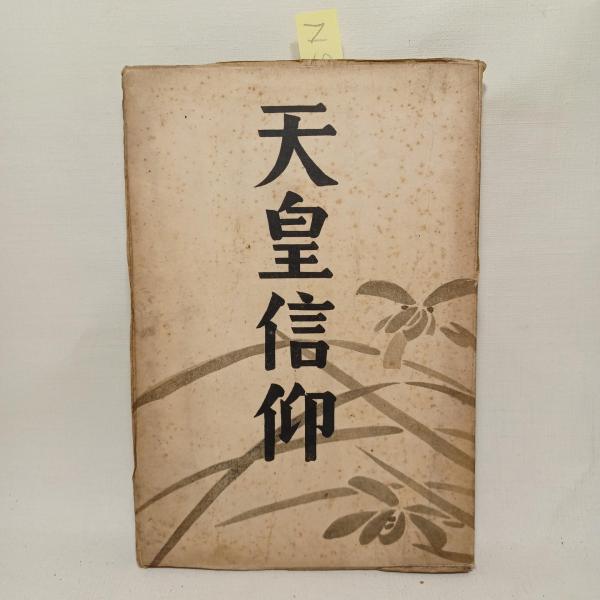 天皇信仰